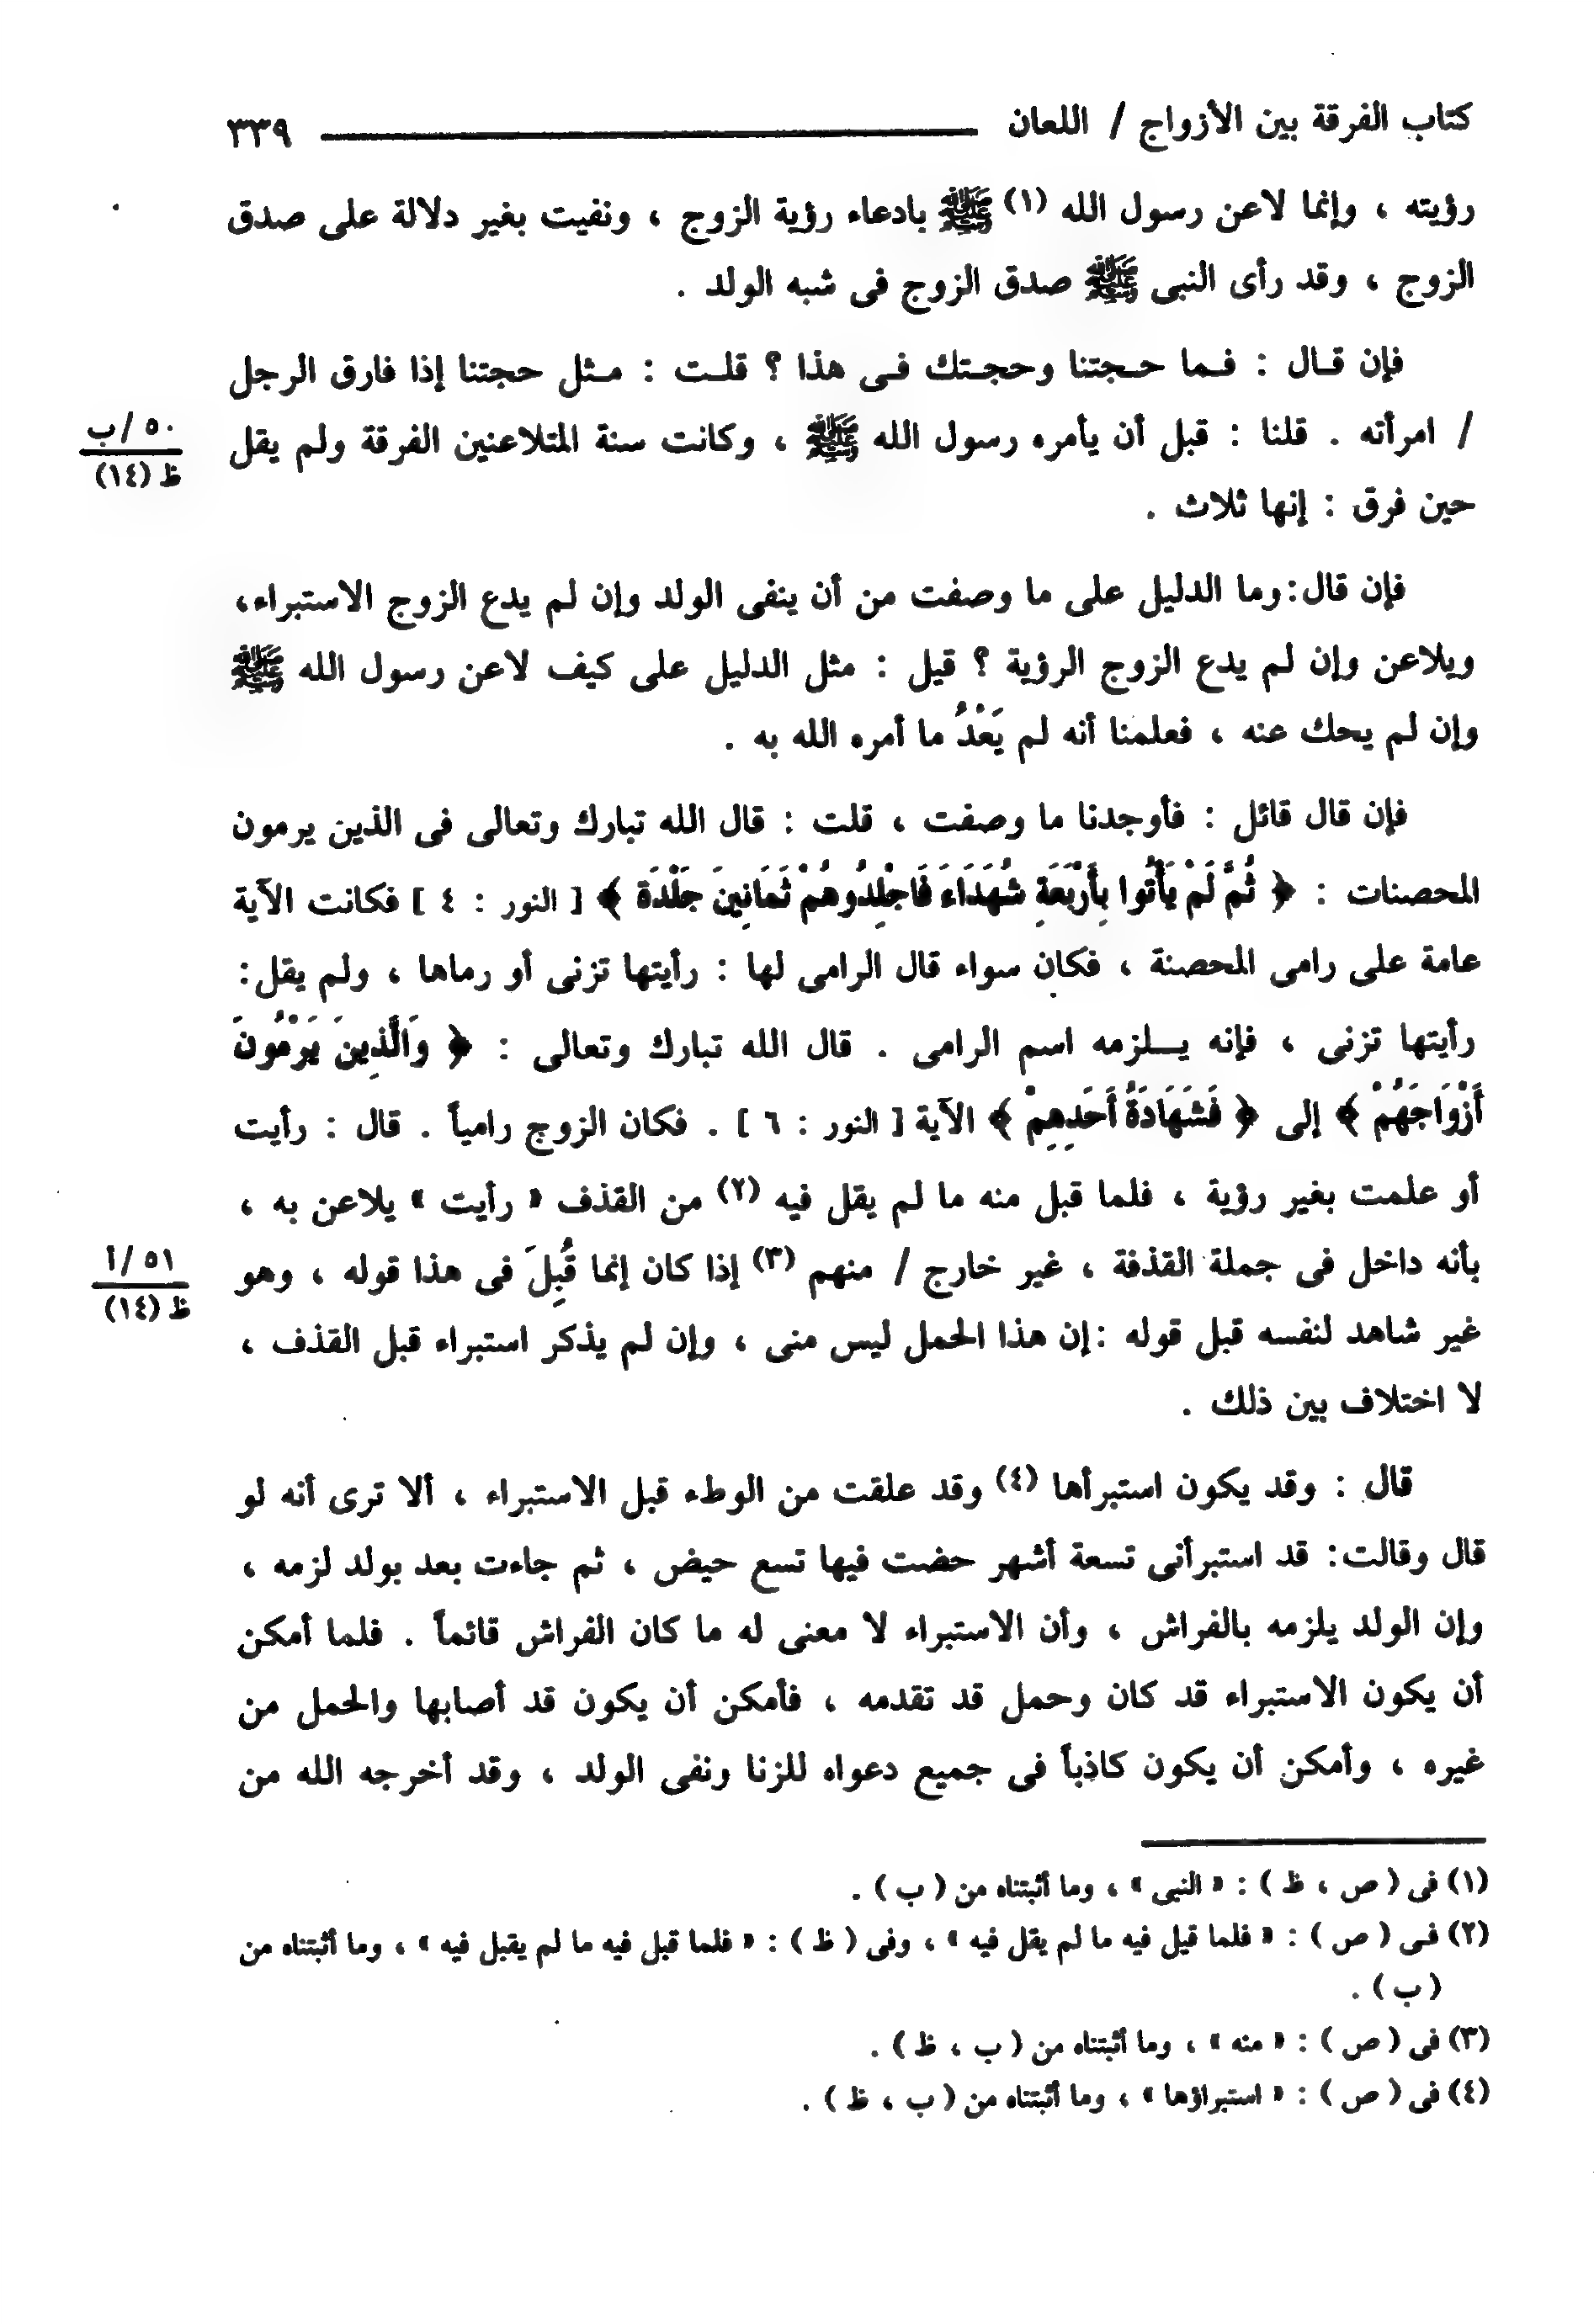 كتاب الفرقة بين الأزواج / اللعان ٣٣٩
رؤيته ، وإنما لاعن رسول الله (١) ﷺ بادعاء رؤية الزوج ، ونفيت بغير دلالة على صدق
الزوج ، وقد رأى النبى ﷺ صدق الزوج فى شبه الولد .
فإن قال : فما حجتنا وحجتك فى هذا ؟ قلت : مثل حجتنا إذا فارق الرجل
/ امرأته . قلنا : قبل أن يأمره رسول الله ﷺ ، وكانت سنة المتلاعنين الفرقة ولم يقل
٥٠ /ب
ظ (١٤)
حين فرق : إنها ثلاث .
فإن قال:وما الدليل على ما وصفت من أن ينفى الولد وإن لم يدع الزوج الاستبراء،
ويلاعن وإن لم يدع الزوج الرؤية ؟ قيل : مثل الدليل على كيف لاعن رسول الله ﷺ
وإن لم يحك عنه ، فعلمنا أنه لم يَعْدُ ما أمره الله به .
فإن قال قائل : فأوجدنا ما وصفت ، قلت : قال الله تبارك وتعالى فى الذين يرمون
المحصنات : ﴿ ثُمَّ لَمْ يَأْتُوا بِأَرْبَعَةِ شُهَدَاءَ فَاجْلِدُوهُمْ ثَمَانِينَ جَلْدَة ﴾ [ النور : ٤ ] فكانت الآية
عامة على رامى المحصنة ، فكان سواء قال الرامى لها : رأيتها تزنى أو رماها ، ولم يقل:
رأيتها تزنى ، فإنه يلزمه اسم الرامى . قال الله تبارك وتعالى : ﴿ وَالَّذِينَ يَرْمُونَ
أَزْوَاجَهُمْ ﴾ إلى ﴿ فَشَهَادَةُ أَحَدِهِمْ ﴾ الآية [ النور : ٦ ] . فكان الزوج رامياً . قال : رأيت
أو علمت بغير رؤية ، فلما قبل منه ما لم يقل فيه (٢) من القذف « رأيت » يلاعن به ،
بأنه داخل فى جملة القذفة ، غير خارج / منهم (٣) إذا كان إنما قُبِلَ فى هذا قوله ، وهو
٥١ /أ
ظ (١٤)
غير شاهد لنفسه قبل قوله :إن هذا الحمل ليس منى ، وإن لم يذكر استبراء قبل القذف ،
لا اختلاف بين ذلك .
قال : وقد يكون استبرأها (٤) وقد علقت من الوطء قبل الاستبراء ، ألا ترى أنه لو
قال وقالت: قد استبرأنى تسعة أشهر حضت فيها تسع حيض ، ثم جاءت بعد بولد لزمه ،
وإن الولد يلزمه بالفراش ، وأن الاستبراء لا معنى له ما كان الفراش قائماً . فلما أمكن
أن يكون الاستبراء قد كان وحمل قد تقدمه ، فأمكن أن يكون قد أصابها والحمل من
غيره ، وأمكن أن يكون كاذباً فى جميع دعواه للزنا ونفى الولد ، وقد أخرجه الله من
(١) فى ( ص ، ظ ) : « النبى » ، وما أثبتناه من ( ب ) .
(٢) فى ( ص ) : « فلما قيل فيه ما لم يقل فيه » ، وفى ( ظ ) : « فلما قبل فيه ما لم يقبل فيه » ، وما أثبتناه من
( ب ) .
(٣) فى ( ص ) : « منه » ، وما أثبتناه من ( ب ، ظ ) .
(٤) فى ( ص ) : « استبراؤها » ، وما أثبتناه من ( ب ، ظ ) .